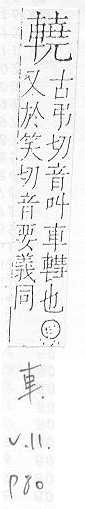 古弔切音叫車也
又於笑切音要義同
車.
v.11.
p80